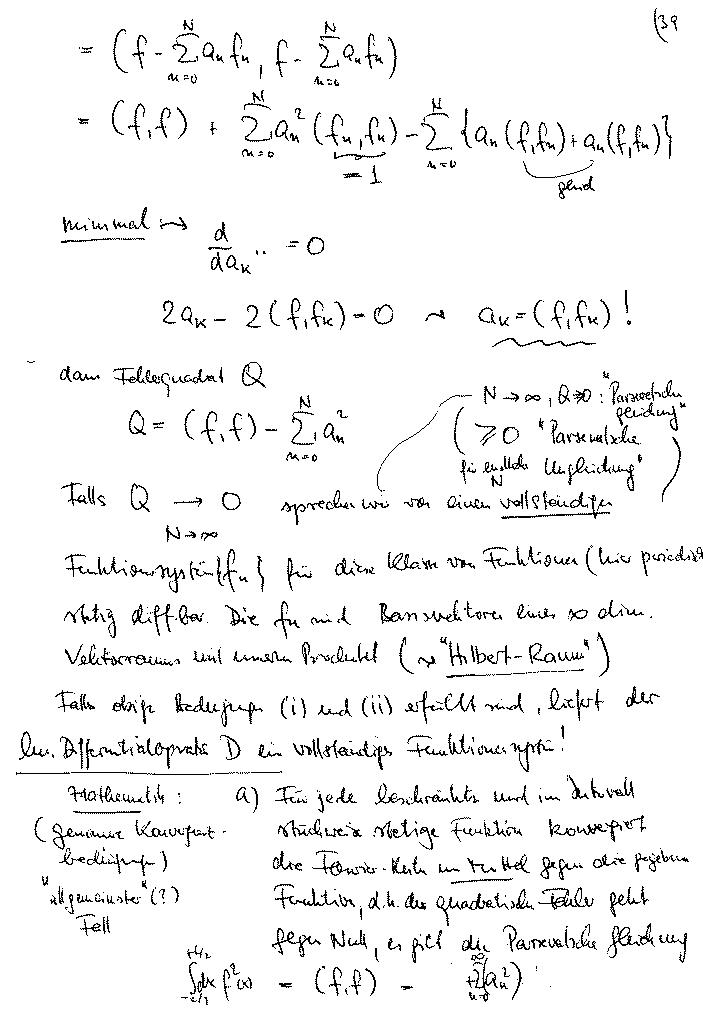 (39
= (f - ∑_{n=0}^{N} a_n f_n , f - ∑_{n=0}^{N} a_n f_n)
= (f,f) + ∑_{n=0}^{N} a_n^2 (f_n, f_n) - ∑_{n=0}^{N} {a_n (f,f_n) + a_n (f,f_n)}
= 1
minimal ⇝ d/da_k ·· = 0
2a_k - 2(f,f_k) = 0 ~ a_k = (f,f_k) !
dann Fehlerquadrat Q
N → ∞, Q → 0 : "Parsevalsche
Gleichung"
Q = (f,f) - ∑_{n=0}^{N} a_n^2
( ≥ 0 "Parsevalsche
für endliche Ungleichung" )
N
Falls Q → 0 sprechen wir von einem vollständigen
N → ∞
Funktionensystem {f_n} für diese Klasse von Funktionen (hier periodisch
stetig diffbar. Die f_n sind Basisvektoren eines ∞ dim.
Vektorraums mit innerem Produkt (~ "Hilbert-Raum")
Falls obige Bedingungen (i) und (ii) erfüllt sind, liefert der
lin. Differentialoperator D ein vollständiges Funktionensystem!
Mathematik : a) Für jede beschränkte und im Intervall
(genauere Konvergenz- stückweise stetige Funktion konvergiert
bedingungen) die Fourier-Reihe im Mittel gegen die gegebene
"allgemeinster" (?) Funktion, d.h. der quadratische Fehler geht
Fall
gegen Null, es gilt die Parsevalsche Gleichung
∫dx f^2(x) = (f,f) = ∑_{n=0}^{∞} a_n^2